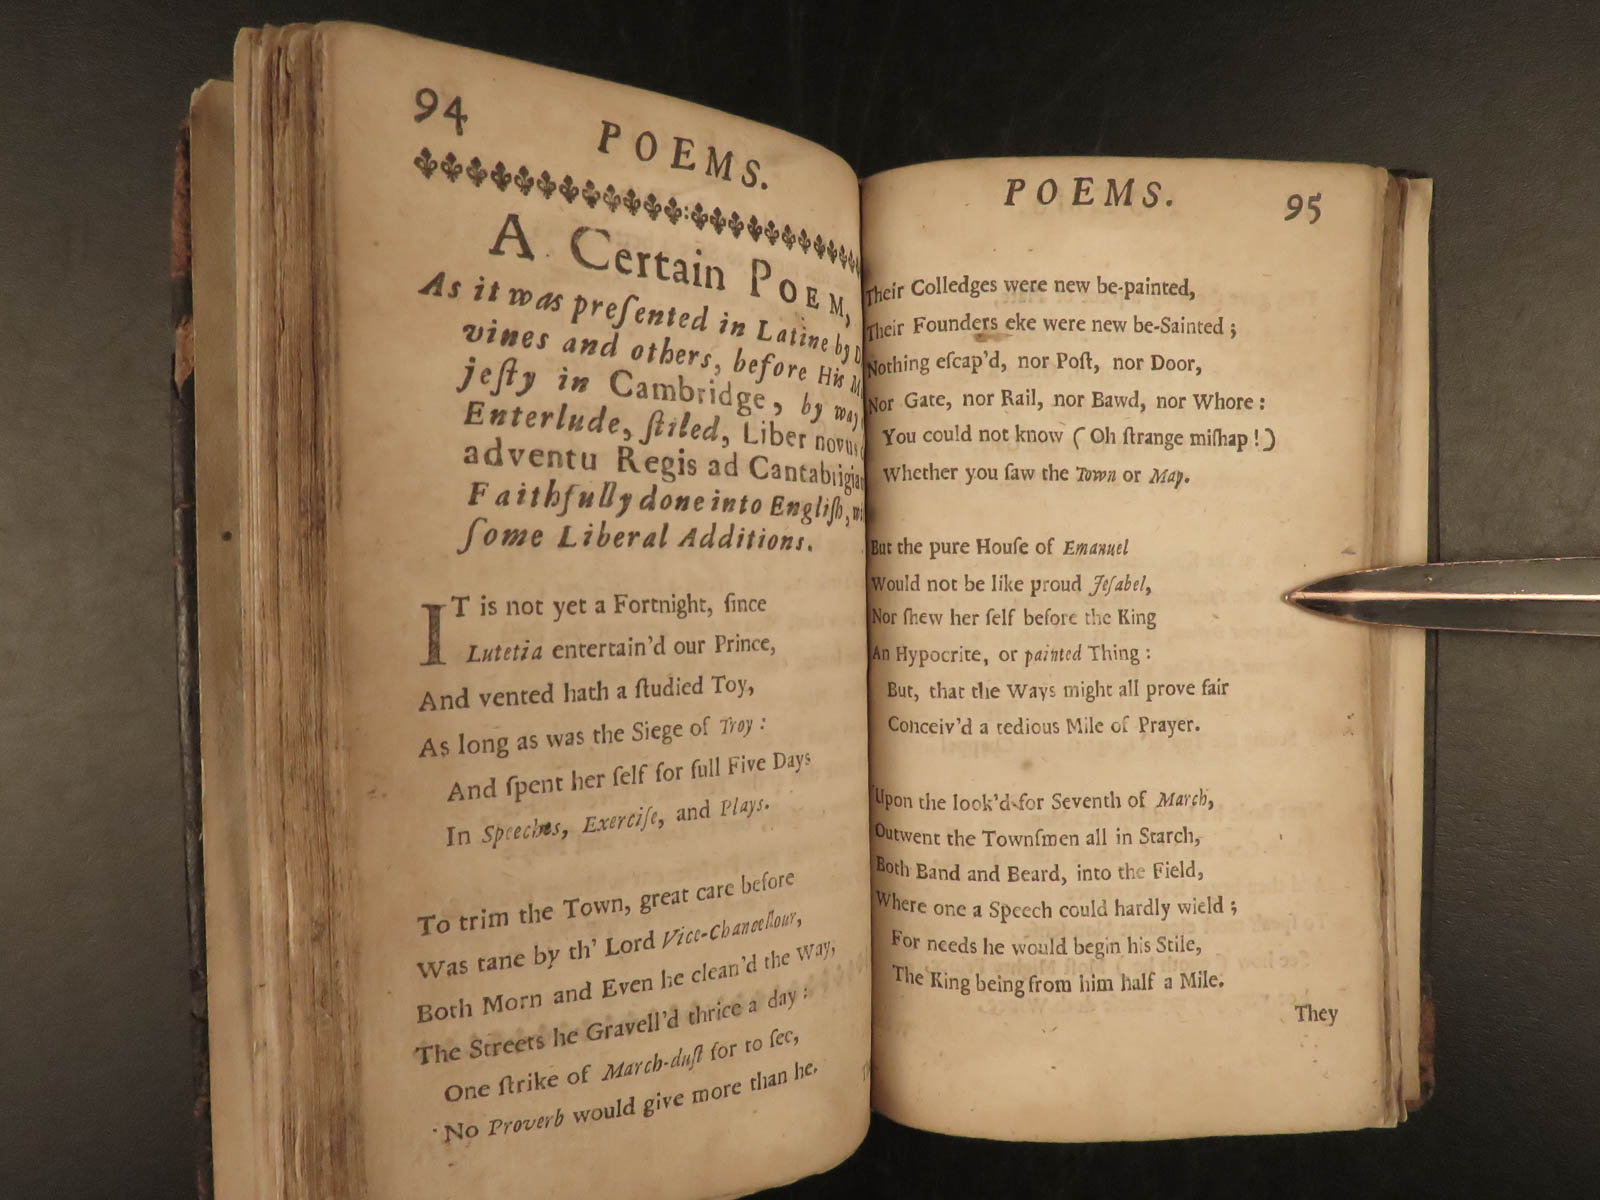 94
POEMS.
A Certain POEM,
As it was preſented in Latine by
vines and others, before His
jeſty in Cambridge, by way
Enterlude, ſtiled, Liber novus
adventu Regis ad
Faithfully done into Engliſh,
ſome Liberal Additions.
IT is not yet a Fortnight, ſince
Lutetia entertain'd our Prince,
And vented hath a ſtudied Toy,
As long as was the Siege of Troy:
And ſpent her ſelf for full Five Days
In Speeches, Exerciſe, and Plays.
To trim the Town, great care before
Was tane by th' Lord Vice-Chancellour,
Both Morn and Even he clean'd the Way,
The Streets he Gravell'd thrice a day:
One ſtrike of March-duſt for to ſee,
No Proverb would give more than he.
POEMS.
95
Their Colledges were new be-painted,
Their Founders eke were new be-Sainted;
Nothing eſcap'd, nor Poſt, nor Door,
Nor Gate, nor Rail, nor Bawd, nor Whore:
You could not know (Oh ſtrange miſhap!)
Whether you ſaw the Town or Map.
But the pure Houſe of Emanuel
Would not be like proud Jeſabel,
Nor ſhew her ſelf before the King
An Hypocrite, or painted Thing:
But, that the Ways might all prove fair
Conceiv'd a tedious Mile of Prayer.
Upon the look'd-for Seventh of March,
Outwent the Townſmen all in Starch,
Both Band and Beard, into the Field,
Where one a Speech could hardly wield;
For needs he would begin his Stile,
The King being from him half a Mile.
They